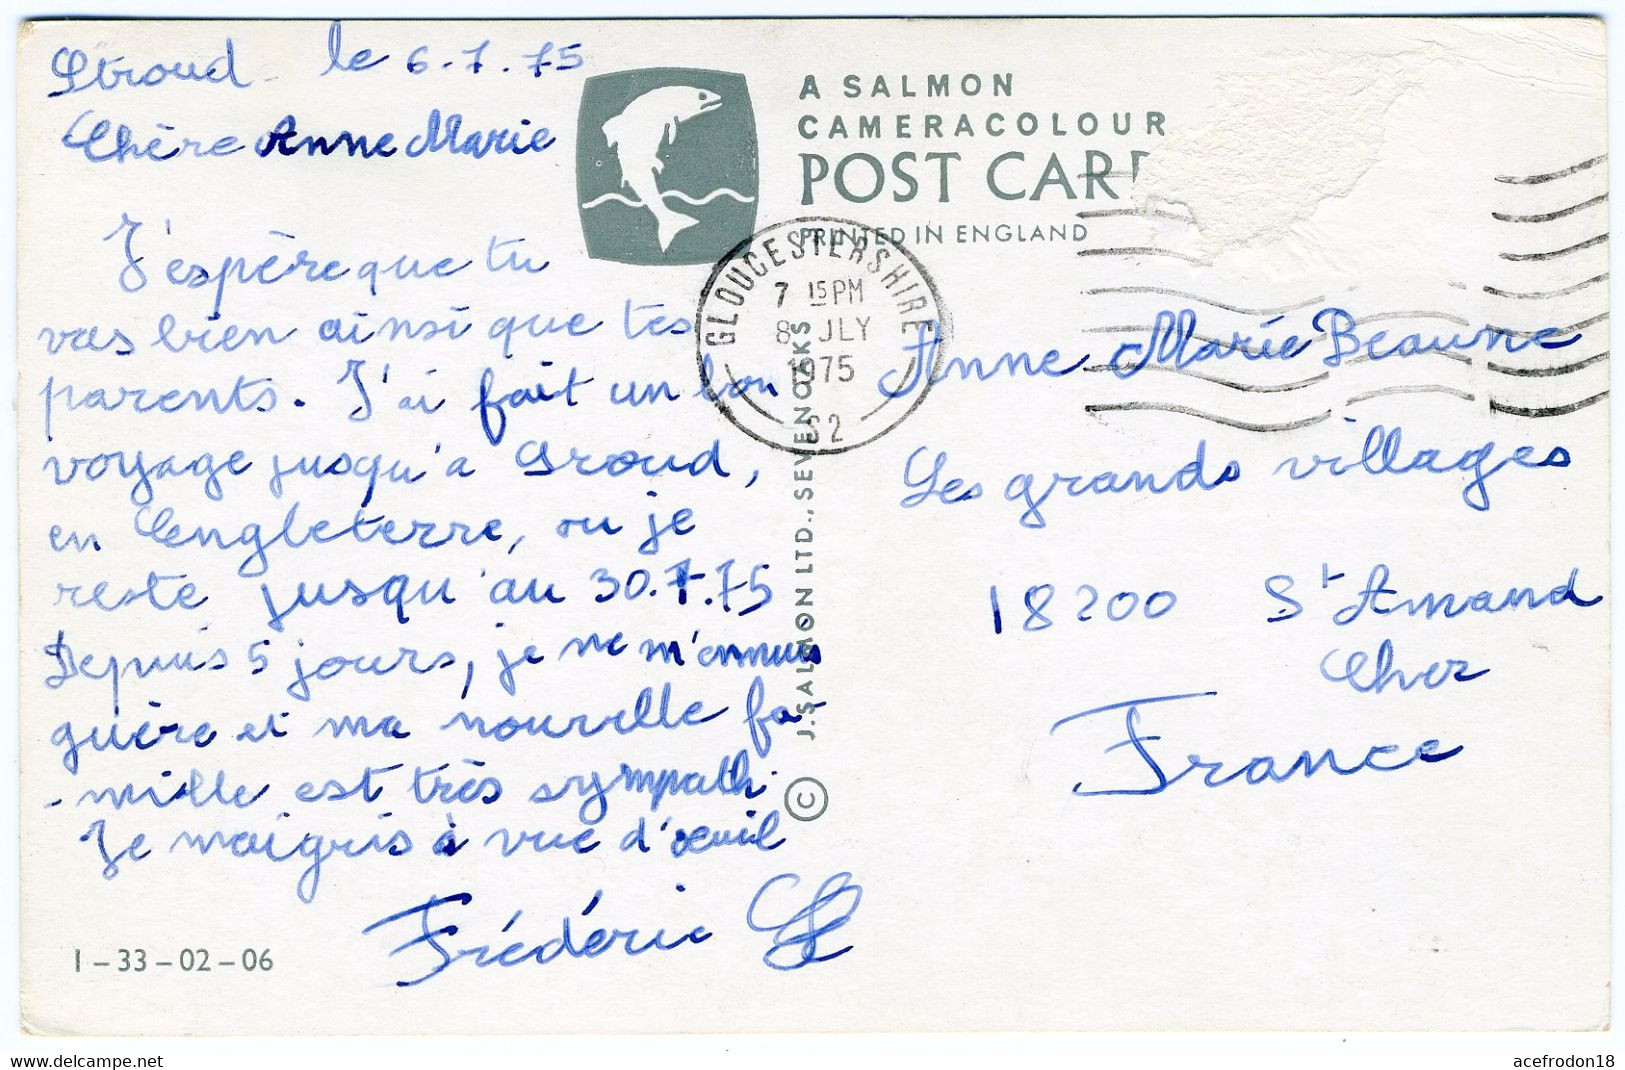 Stroud - le 6.7.75
Chère Anne Marie
J'espère que tu
vas bien ainsi que tes
parents. J'ai fait un bon
voyage jusqu'a Stroud,
en Engleterre, ou je
reste jusqu'au 30.7.75
Depuis 5 jours, je ne m'ennuis
guère et ma nouvelle fa-
-mille est très sympath.
Je maigris à vue d'oeuil
Frédéric
1-33-02-06
A SALMON
CAMERACOLOUR
POST CARD
PRINTED IN ENGLAND
GLOUCESTERSHIRE
7 15PM
8 JLY
1975
S2
© J. SALMON LTD., SEVENOAKS
Anne Marie Beaune
Les grands villages
18200 St Amand
Cher
France
Delcampe.net
acefrodon18